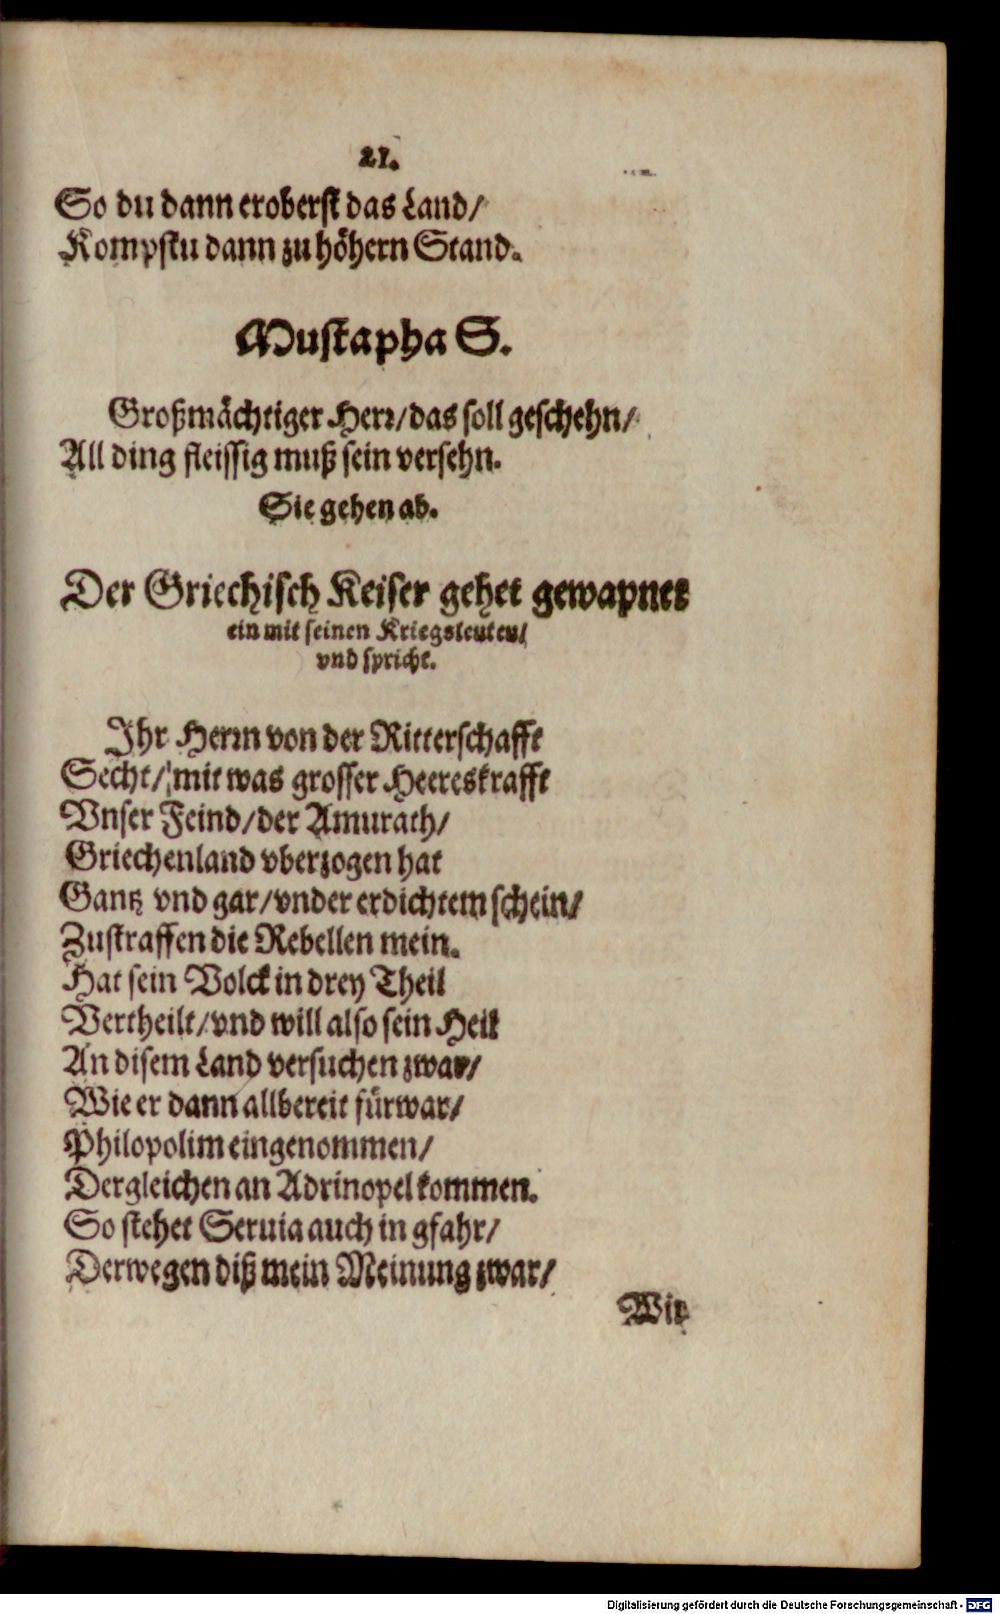 21.
So du dann eroberst das Land/
Kompstu dann zu höhern Stand.
Mustapha S.
Großmächtiger Herr/das soll geschehn/
All ding fleissig muß sein versehn.
Sie gehen ab.
Der Griechisch Keiser gehet gewapnet
ein mit seinen Kriegsleuten/
vnd spricht.
Ihr Herrn von der Ritterschafft
Secht/ mit was grosser Heereskrafft
Vnser Feind/der Amurath/
Griechenland vberzogen hat
Gantz vnd gar/vnder erdichtem schein/
Zustraffen die Rebellen mein.
Hat sein Volck in drey Theil
Vertheilt/vnd will also sein Heil
An disem Land versuchen zwar/
Wie er dann allbereit fürwar/
Philopolim eingenommen/
Dergleichen an Adrinopel kommen.
So stehet Seruia auch in gfahr/
Derwegen diß mein Meinung zwar/
Wir
Digitalisierung gefördert durch die Deutsche Forschungsgemeinschaft - DFG